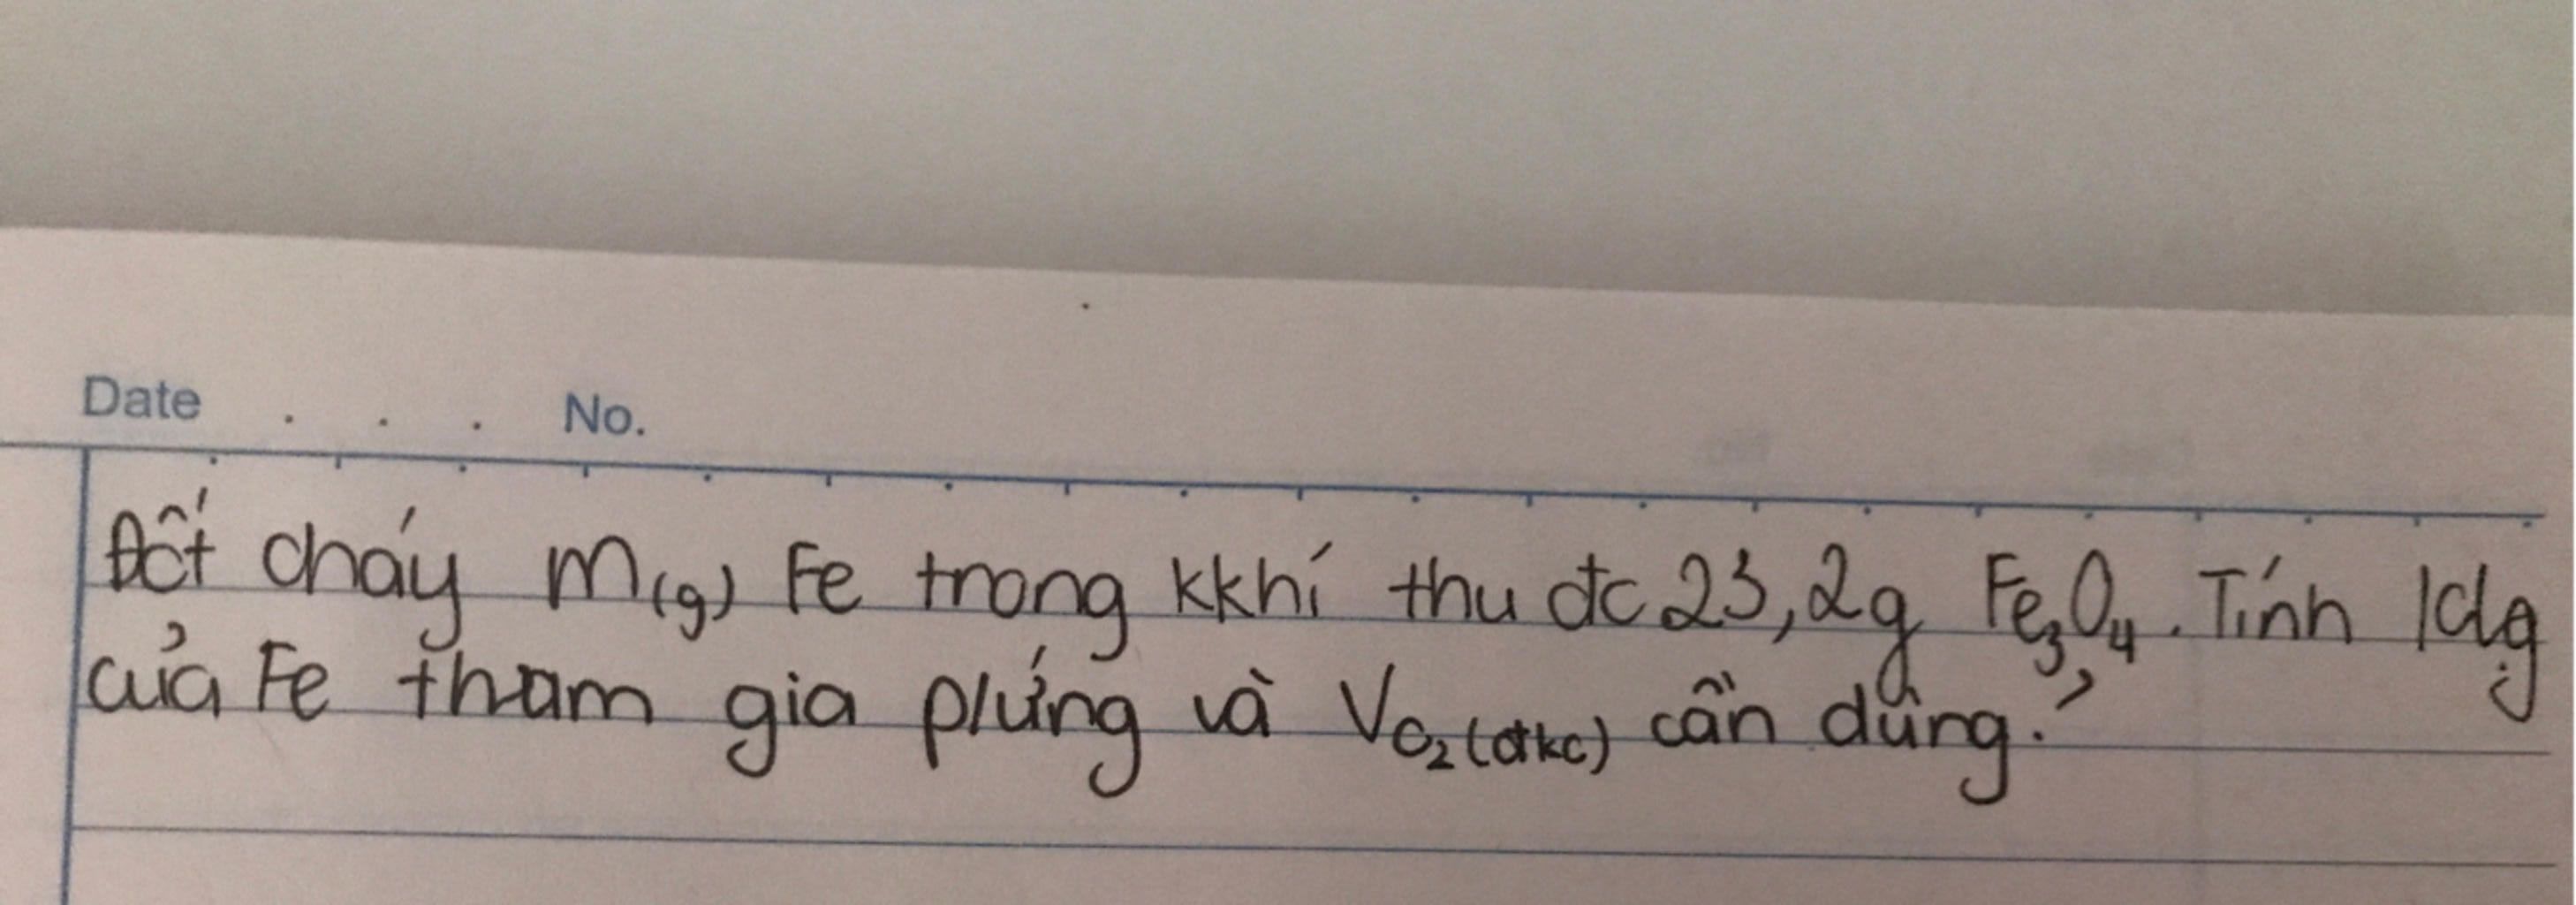 Date . . . No.
Đốt cháy m(g) Fe trong kkhí thu đc 23,2g Fe₃O₄. Tính klg
của Fe tham gia p/ứng và V O₂(đkc) cần dùng?